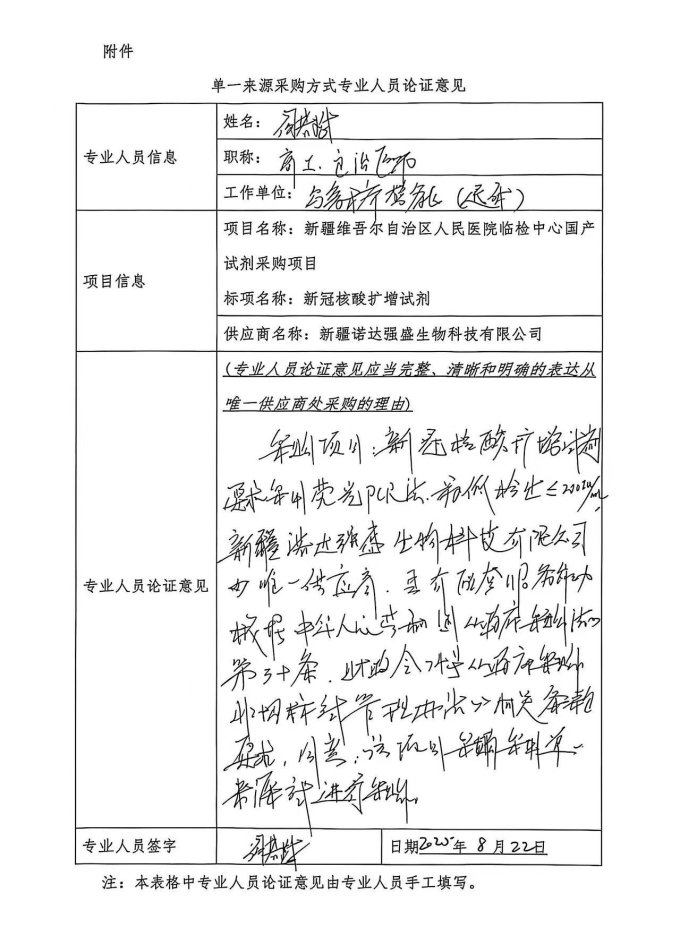 附件
单一来源采购方式专业人员论证意见
专业人员信息
姓名：
职称：高工
工作单位：
项目信息
项目名称：新疆维吾尔自治区人民医院临检中心国产
试剂采购项目
标项名称：新冠核酸扩增试剂
供应商名称：新疆诺达强盛生物科技有限公司
专业人员论证意见
(专业人员论证意见应当完整、清晰和明确的表达从
唯一供应商处采购的理由)
采购项目：新冠核酸扩增试剂
要求采用荧光PCR法
新疆诺达强盛生物科技有限公司
为唯一供应商
根据中华人民共和国政府采购法
第三十条，财政令74号政府采购
非招标方式管理办法相关条款
要求，同意，该项目采用单一
来源方式进行采购。
专业人员签字
日期2025年8月22日
注：本表格中专业人员论证意见由专业人员手工填写。